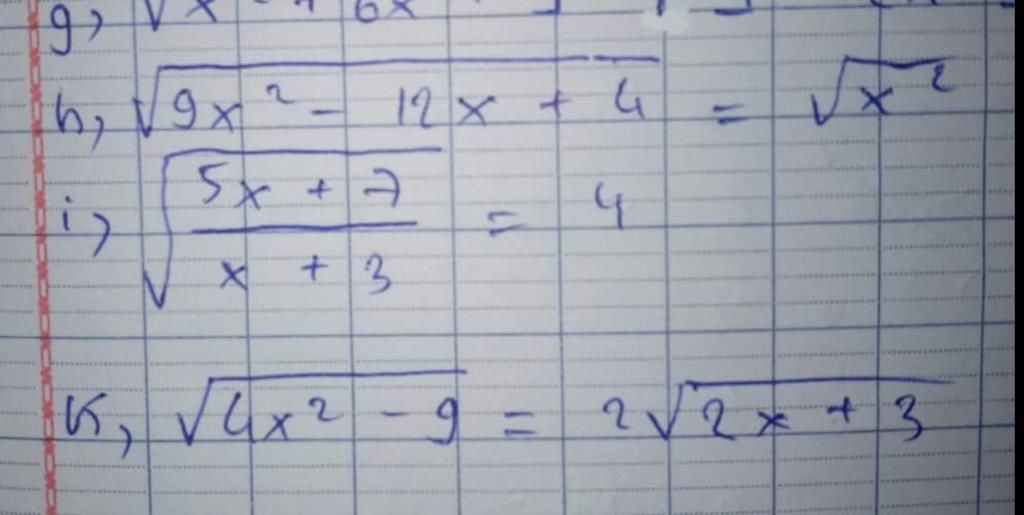 g, √x² + 6x
h, √9x² - 12x + 4 = √x²
i, √(5x + 7)/(x + 3) = 4
K, √4x² - 9 = 2√2x + 3